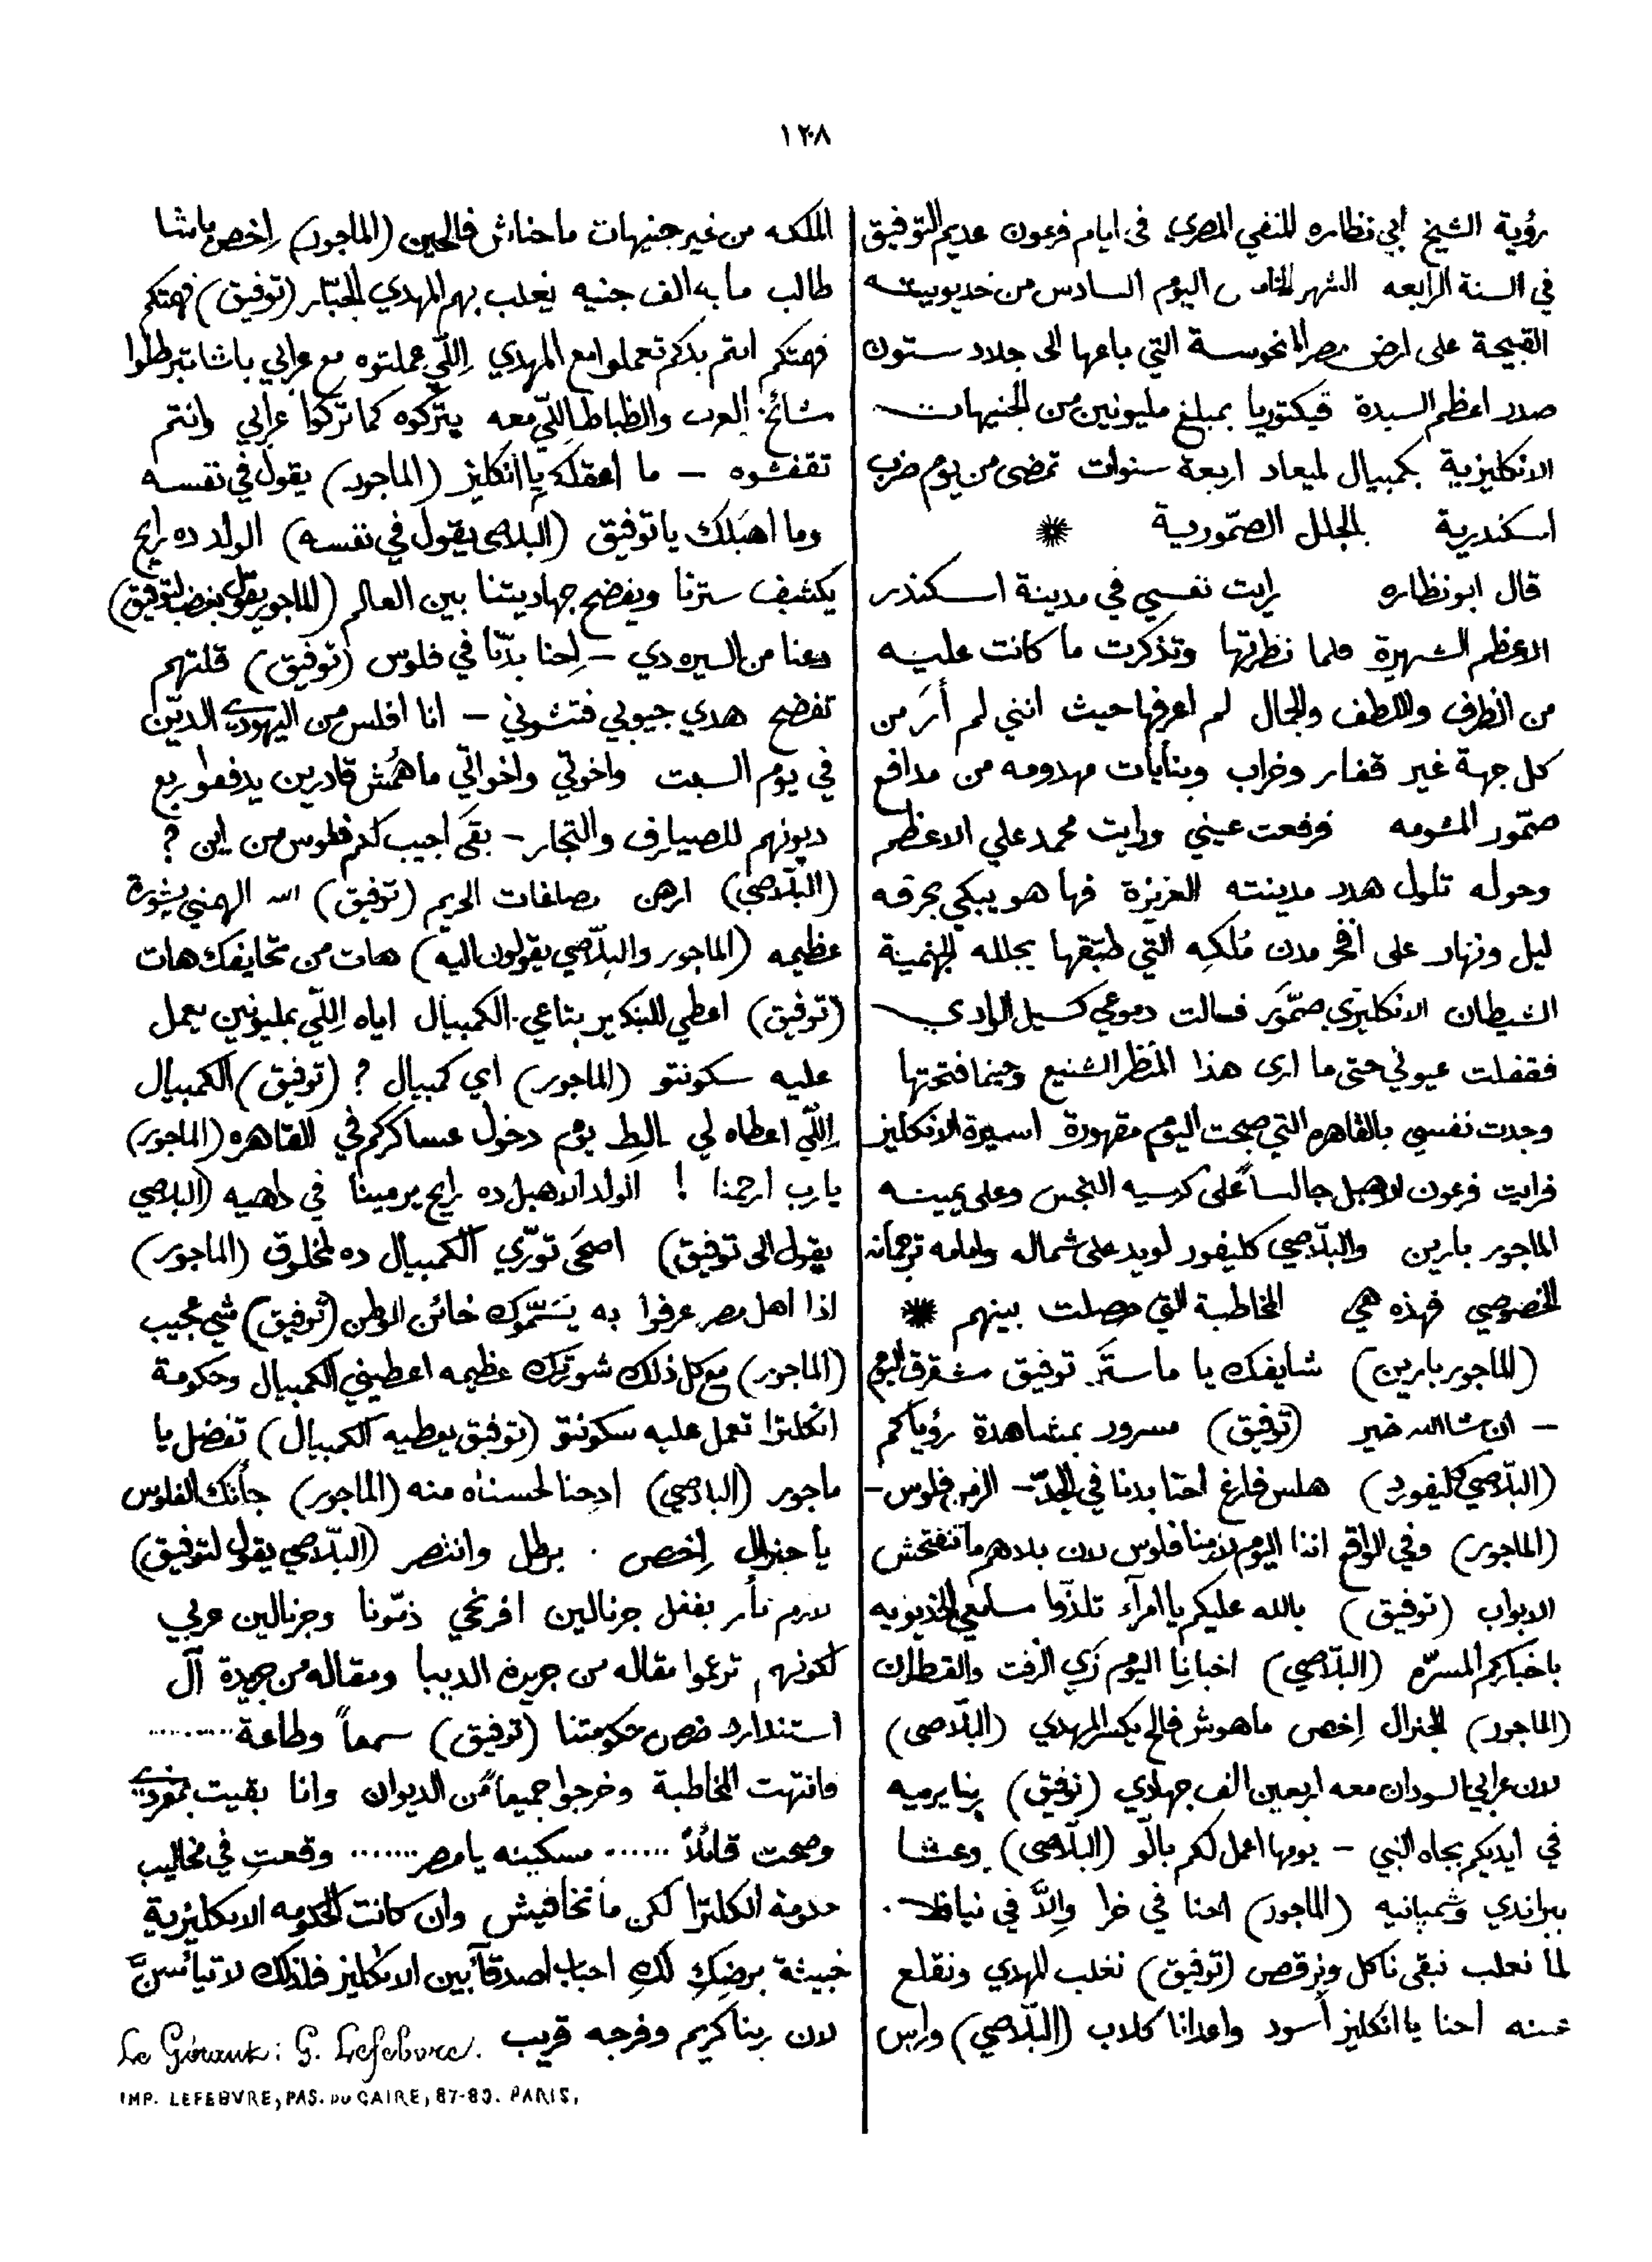 ١٢٠٨
رؤية الشيخ ابي نظاره المنفي المصري في ايام فرعون عديم التوفيق
في السنة الرابعه الشهر الخامس اليوم السادس من خديويته
القبيحة على ارض مصر المنحوسة التي باعها الى جلادستون
صدر اعظم السيدة ڤيكتوريا بمبلغ مليونين من الجنيهات
الانكليزية بكمبيال لميعاد اربعة سنوات تمضى من يوم ضرب
اسكندرية بالجلل الصمّورية ✺
قال ابو نظاره رايت نفسي في مدينة اسكندر
الاعظم الشهيرة فلما نظرتها وتذكرت ما كانت عليه
من الظرف واللطف والجمال لم اعرفها حيث انني لم أرَ من
كل جهة غير قفار وخراب وبنايات مهدومه من مدافع
صمّور المشومه فرفعت عيني ورايت محمد علي الاعظم
وحوله تلول هدد مدينته العزيزة فها هو يبكي بحرقه
ليل ونهار على افخر مدن مُلكِه التي طبّقها بجلله الجهنمية
الشيطان الانكليزي صمّور فسالت دموعي كسيل الوادي
فقفلت عيوني حتى ما ارى هذا المنظر الشنيع وحينما فتحتها
وجدت نفسي بالقاهره التي صبحت اليوم مقهورة اسيرة الانكليز
فرايت فرعون الاهبل جالساً على كرسيه النجس وعلى يمينه
الماجور بارين والبلّاصي كليفور لويد على شماله وامامه ترجمانه
الخصوصي فهذه هي المخاطبة التي حصلت بينهم ✺
(الماجور بارين) شايفك يا ماستَر توفيق مشقرق اليوم
– ان شاالله خير (توفيق) مسرور بمشاهدة رؤياكم
(البلّاصي كليفورد) هلس فارغ احنا بدنا في الجدّ – الزمن فلوس –
(الماجور) وفي الواقع اننا اليوم لازمنا فلوس لان بلاهم ما تنفتحش
الابواب (توفيق) بالله عليكم يا امرآء تلذّذوا سامعي الخديويه
باخباركم المسرّه (البلّاصي) اخبارنا اليوم زَي الزفت والقطران
(الماجور) الجنرال إخص ماهوش فالح يكسر المهدي (البلّاصي)
لان عرابي السودان معه اربعين الف جهادي (توفيق) ربنا يرميه
في ايديكم بجاه النبي – يومها اعمل لكم بالّو (البلّاصي) وعشا
ببراندي وشمبانيه (الماجور) احنا في خرا والاّ في نيافه.
لما نغلب نبقى ناكل ونرقص (توفيق) نغلب المهدي ونقلع
عينه احنا يا انكليز أسود واعدانا كلاب (البلّاصي) وابن
الملكه من غير جنيهات ما حناش فالحين (الماجور) إخص باشا
طالب مايه الف جنيه يغلب بهم المهدي الجبّار (توفيق) فهمتكم
فهمتكم انتم بدكم تعملوا مع المهدي اللّي عملتوه مع عرابي باشا تبرطلوا
مشائخ العرب والظباط اللّي معه يتركوه كما تركوا عرابي وانتم
تقفشوه – ما اعقلك يا انكليز (الماجور) يقول في نفسه
وما اهبَلك يا توفيق (البلاصي يقول في نفسه) الولد ده رايح
يكشف سترنا ويفضح جهاديتنا بين العالم (الماجور يقول بغضب لتوفيق)
دعنا من السيره دي – إحنا بدّنا في فلوس (توفيق) قلتهم
تفضح هدي جيوبي فتشوني – انا افلس من اليهودي الديّن
في يوم السبت واخوتي واخواتي ماهُمش قادرين يدفعوا ربع
ديونهم للصيارف والتجار – بقَى اجيب لكم فلوس من اين ؟
(البلّاصي) ارهن مصاغات الحريم (توفيق) الله الهمني بشورة
عظيمه (الماجور والبلّاصي يقولون اليه) هات من تحايفك هات
(توفيق) اعطي للبنكير بتاعي الكمبيال اياه اللّي بمليونين يعمل
عليه سكونتو (الماجور) اي كمبيال ؟ (توفيق) الكمبيال
اللّي اعطاه لي البط يوم دخول عساكركم في القاهره (الماجور)
يارب ارحمنا ! الولد الاهبل ده رايح يرمينا في داهيه (البلاصي
يقول الى توفيق) اصحَى تورّي الكمبيال ده لمخلوق (الماجور)
اذا اهل مصر عرفوا به يَسَمّوك خائن الوطن (توفيق) شي عجيب
(الماجور) مع كل ذلك شورتك عظيمه اعطيني الكمبيال وحكومة
انكلترا تعمل عليه سكونتو (توفيق يعطيه الكمبيال) تفضل يا
ماجور (البلاصي) ادحنا لحسناه منه (الماجور) جاتك الفلوس
يا جنرال إخص . برطل وانتصر (البلّاصي يقول لتوفيق)
لازم تأمر بقفل جرنالين افرنجي ذمّونا وجرنالين عربي
لكونهم ترجموا مقاله من جريدة الديبا ومقاله من جريدة آل
استندارد ضد حكومتنا (توفيق) سمعاً وطاعة..........
فانتهت المخاطبة وخرجوا جميعاً من الديوان وانا بقيت بمفردي
وصحت قائلاً ...... مسكينه يا مصر ....... وقعتِ في مخاليب
حكومة انكلترا لكن ما تخافيش وان كانت الحكومه الانكليزية
خبيثة برضِكِ لكِ احباب اصدقآ بين الانكليز فلذلك لا تيأسنَّ
لان ربنا كريم وفرجه قريب
Le Gérant: G. Lefebvre.
IMP. LEFEBVRE, PAS. DU CAIRE, 87-89. PARIS.